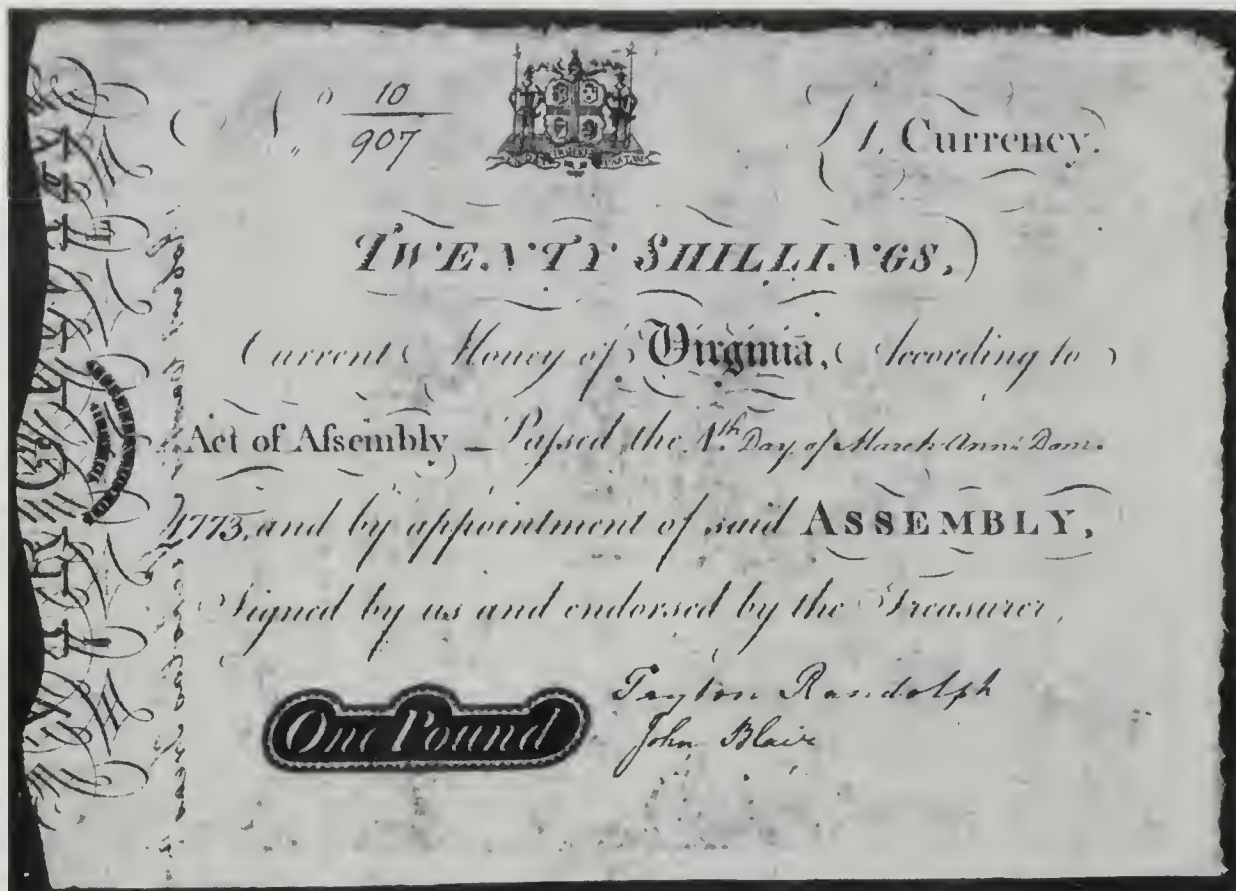 No 10
907
£1, Currency.
TWENTY SHILLINGS,
Current Money of Virginia, According to
Act of Aſsembly, – Paſsed the 4th. Day of March Anno Dom.
1773, and by appointment of said ASSEMBLY,
Signed by us and endorsed by the Treasurer,
One Pound
Peyton Randolph
John Blair